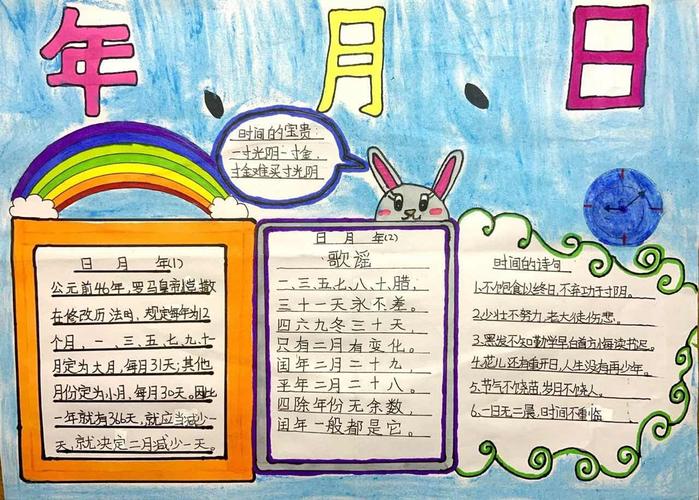 年 · 月 · 日
时间的宝贵:
一寸光阴一寸金,
寸金难买寸光阴
日 月 年(1)
公元前46年,罗马皇帝恺撒
在修改历法时,规定每年为12
个月,一、三、五、七、九、十
月定为大月,每月31天;其他
月份定为小月,每月30天。因此
一年就有366天,就应当减少一
天,就决定二月减少一天。
日 月 年(2)
歌谣
一、三、五、七、八、十、腊,
三十一天永不差。
四六九冬三十天,
只有二月有变化。
闰年二月二十九,
平年二月二十八。
四除年份无余数,
闰年一般都是它。
时间的诗句
1.不饱食以终日,不弃功于寸阴。
2.少壮不努力,老大徒伤悲。
3.黑发不知勤学早,白首方悔读书迟。
4.花儿还有重开日,人生没有再少年。
5.节气不饶苗,岁月不饶人。
6.一日无二晨,时间不重临